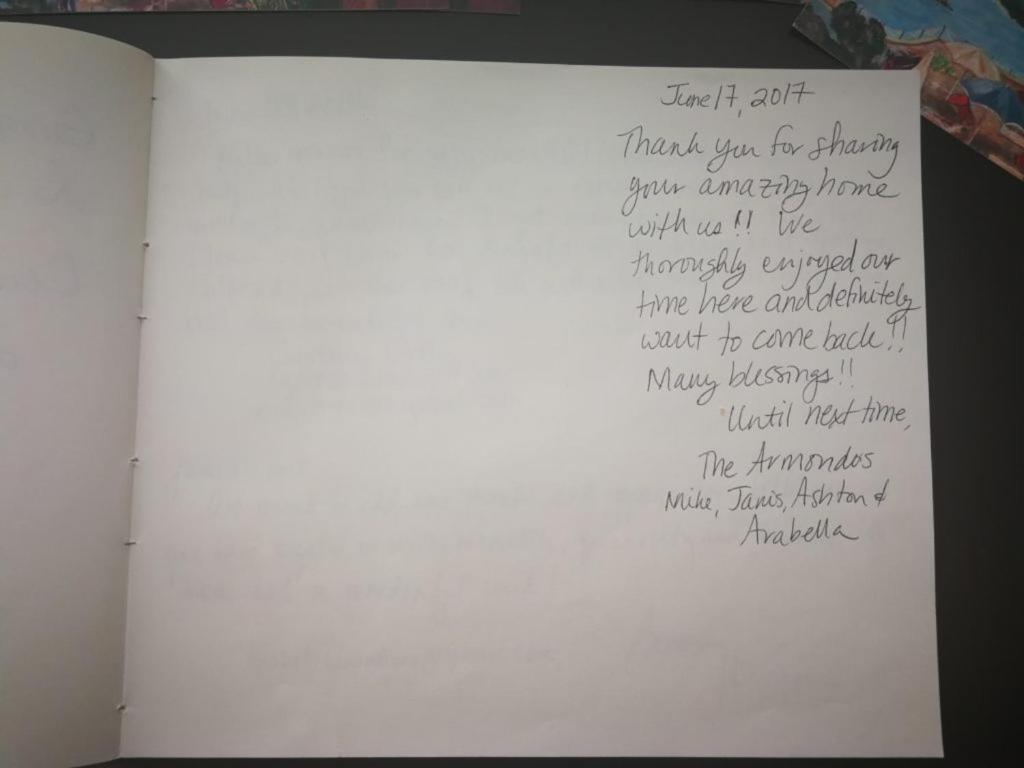 June 17, 2017
Thank you for sharing
your amazing home
with us!! We
thoroughly enjoyed our
time here and definitely
want to come back!!
Many blessings!!
Until next time,
The Armondos
Mike, Janis, Ashton &
Arabella